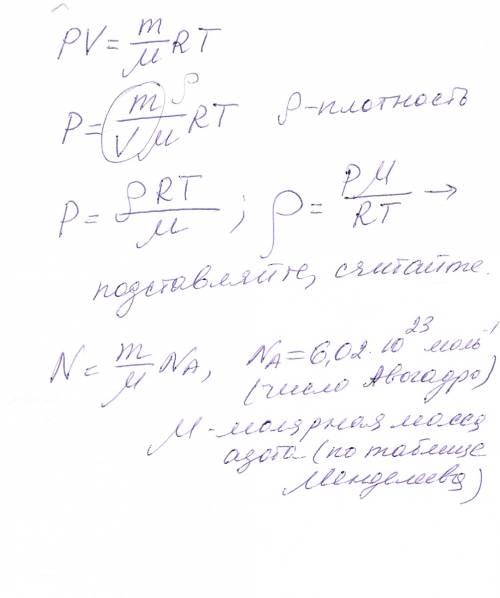 PV = m/M RT
P = m/(V M) RT ρ ρ-плотность
P = ρRT/M ; ρ = PM/RT →
подставляйте, считайте.
N = m/M NA, NA = 6,02·10²³ моль⁻¹
(число Авогадро)
M-молярная масса
азота (по таблице
Менделеева)